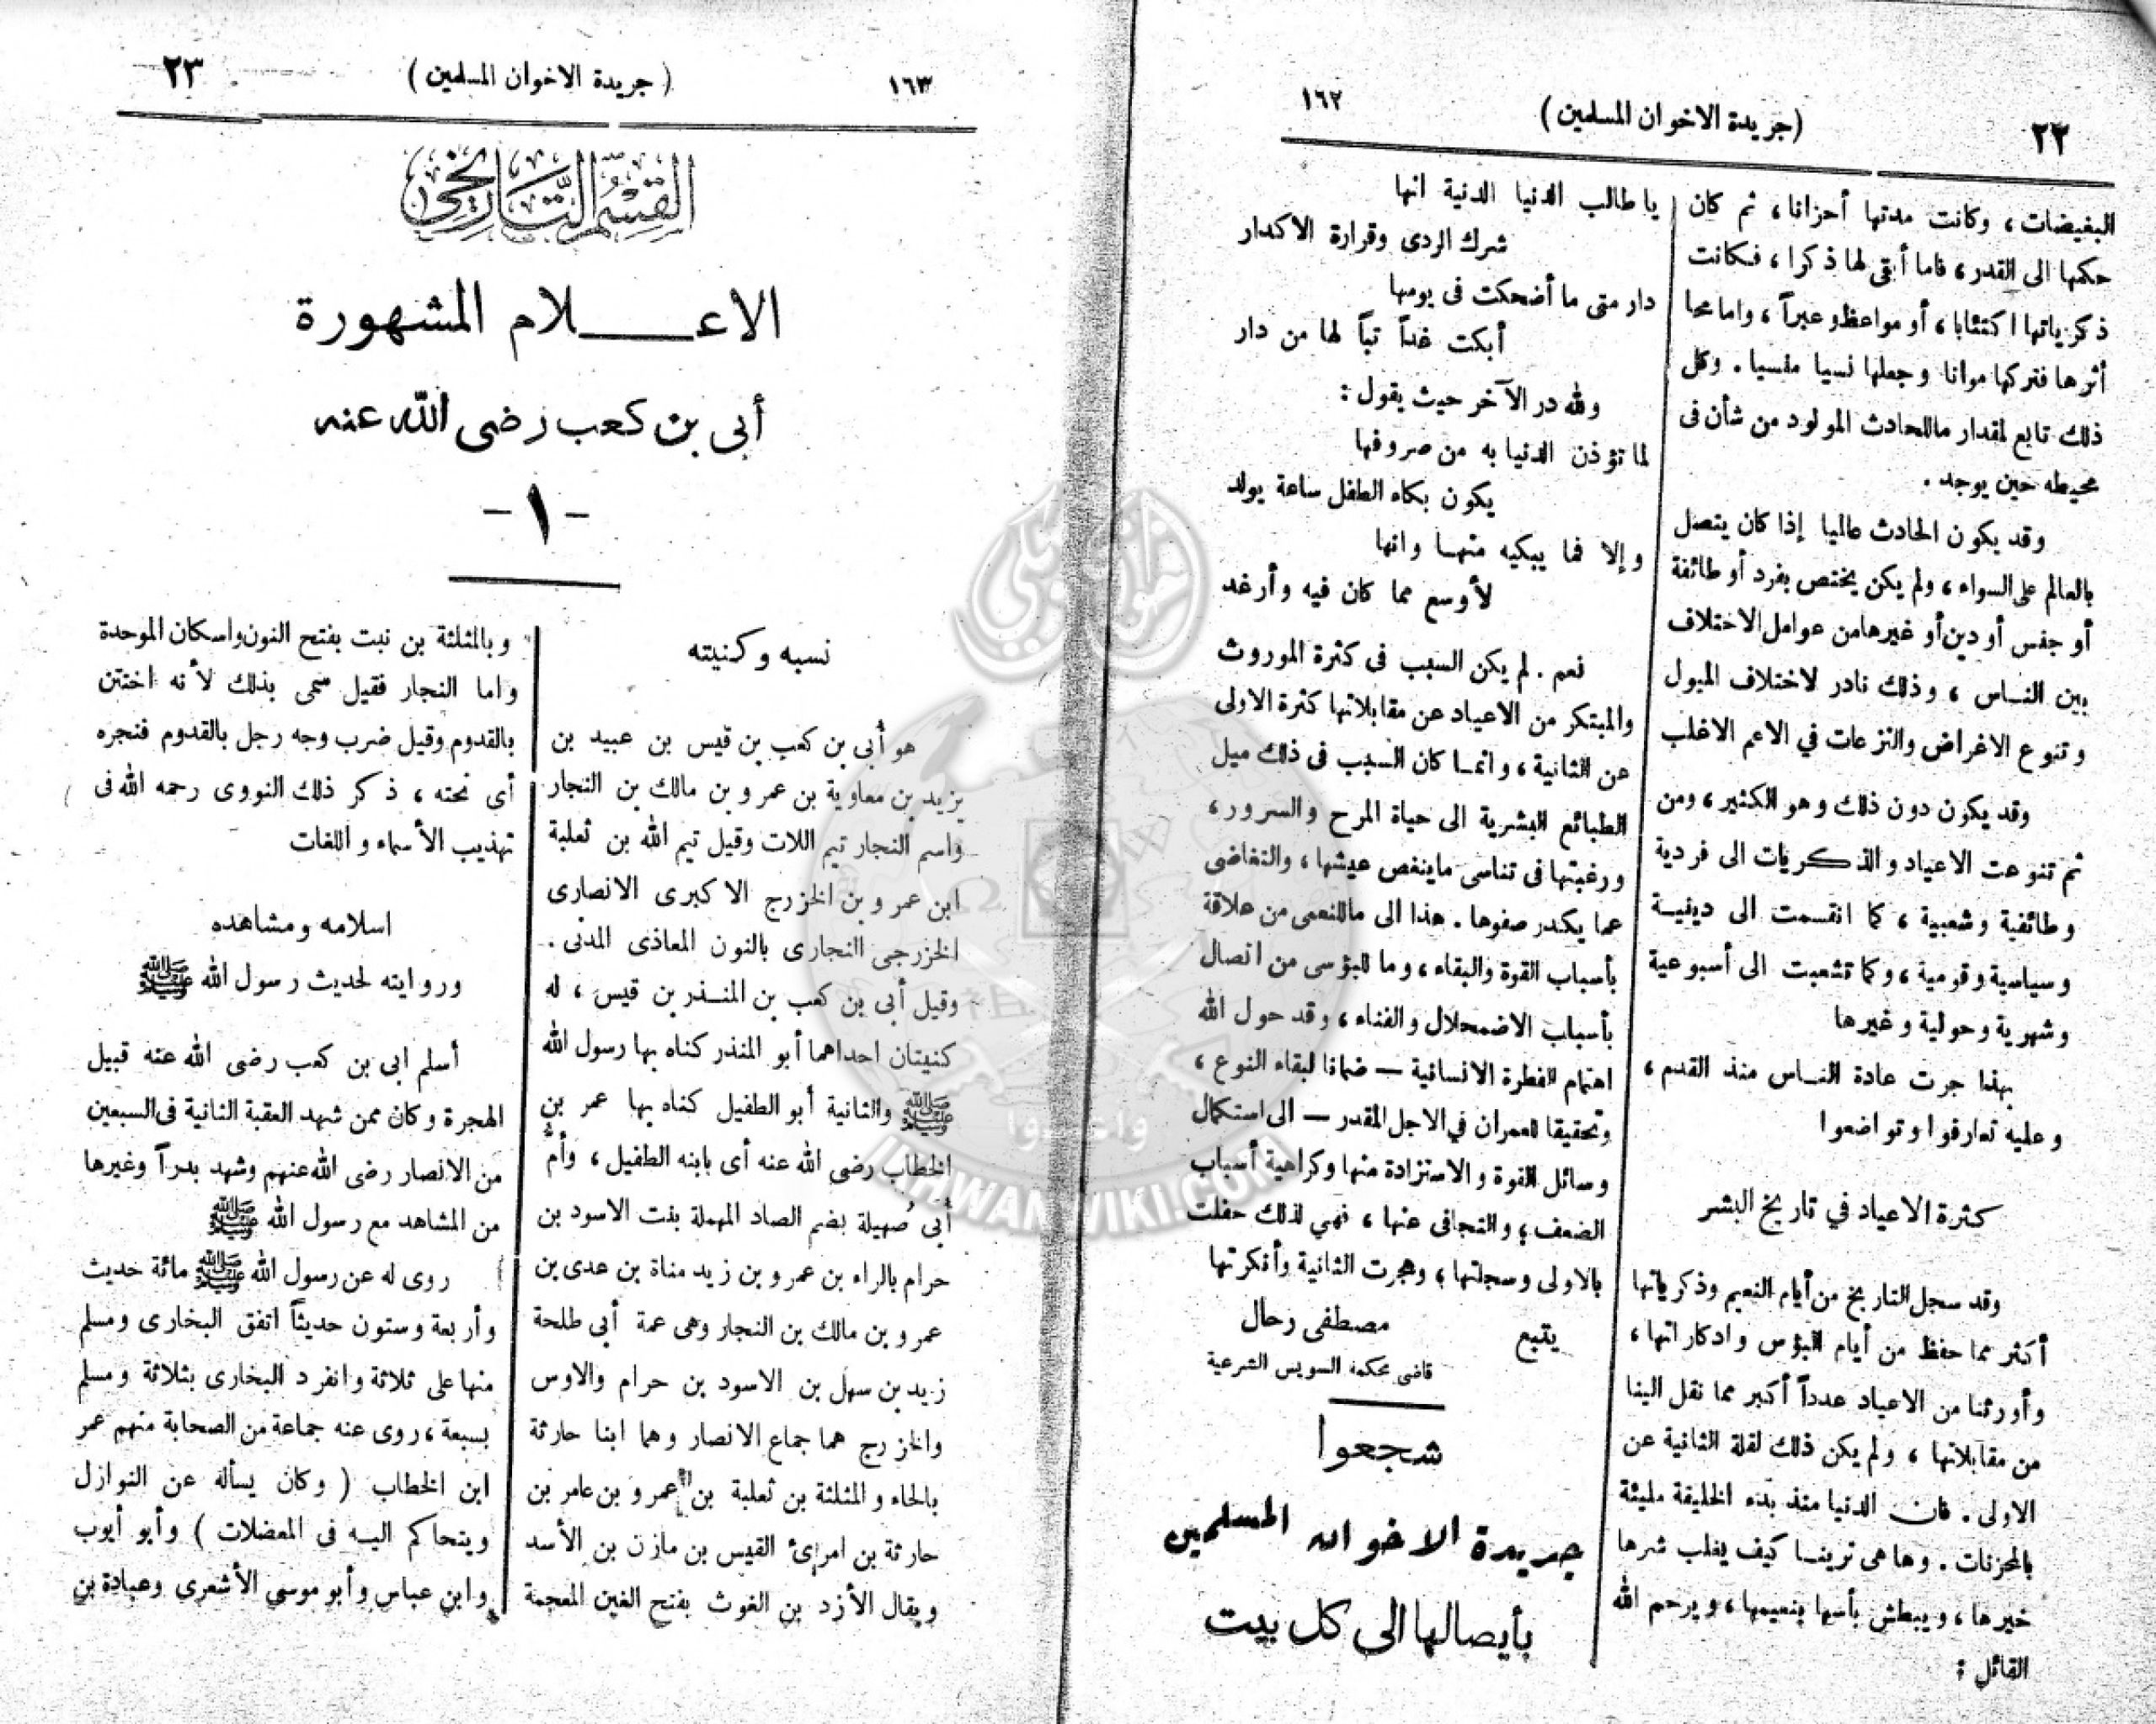 ٢٢
(جريدة الاخوان المسلمين)
١٦٢
البغيضات، وكانت مدتها أحزانا، ثم كان
حكمها الى القدر، فاما أبقى لها ذكرا، فكانت
ذكرياتها اكتئابا، أو مواعظ وعبراً، واما محا
أثرها فتركها مواتا وجعلها نسيا منسيا. وكل
ذلك تابع لمقدار ماللحادث المولود من شأن فى
محيطه حين يوجد.
وقد يكون الحادث عالميا إذا كان يتصل
بالعالم على السواء، ولم يكن يختص بفرد أو طائفة
أو جنس أو دين أو غيرها من عوامل الاختلاف
بين النـاس، وذلك نادر لاختلاف الميول
وتنوع الاغراض والنزعات في الاعم الاغلب
وقد يكون دون ذلك وهو الكثير، ومن
ثم تنوعت الاعياد والذكريات الى فردية
وطائفية وشعبية، كما انقسمت الى دينيـة
وسياسية وقومية، وكما تشعبت الى أسبوعية
وشهرية وحولية وغيرها
بهذا جرت عادة النـاس منذ القدم،
وعليه تعارفوا وتواضعوا
كثرة الاعياد في تاريخ البشر
وقد سجل التاريخ من أيام النعيم وذكرياتها
أكثر مما حفظ من أيام البؤس وادكاراتها،
وأورثنا من الاعياد عدداً أكبر مما نقل الينا
من مقابلاتها، ولم يكن ذلك لقلة الثانية عن
الاولى. فان الدنيا منذ بدء الخليقة مليئة
بالمحزنات. وها هى ترينـا كيف يغلب شرها
خيرها، ويبطش بأسها بنعيمها، ويرحم الله
القائل:
يا طالب الدنيا الدنية انها
شرك الردى وقرارة الاكدار
دار متى ما أضحكت فى يومها
أبكت غداً تباً لها من دار
ولله در الآخر حيث يقول:
لما تؤذن الدنيا به من صروفها
يكون بكاء الطفل ساعة يولد
وإلا فما يبكيه منهـا وانها
لأوسع مما كان فيه وأرغد
نعم. لم يكن السبب فى كثرة الموروث
والمبتكر من الاعياد عن مقابلاتها كثرة الاولى
عن الثانية، وانمـا كان السبب فى ذلك ميل
الطبائع البشرية الى حياة المرح والسرور،
ورغبتها فى تناسى ماينغص عيشها، والتغاضى
عما يكدر صفوها. هذا الى ماللنعمى من علاقة
بأسباب القوة والبقاء، وما للبؤسى من اتصال
بأسباب الاضمحلال والفناء، وقد حول الله
اهتمام الفطرة الانسانية — ضمانا لبقاء النوع،
وتحقيقا للعمران في الاجل المقدر — الى استكمال
وسائل القوة والاستزادة منها وكراهية أسباب
الضعف، والتجافى عنها، فهي لذلك حفلت
بالاولى وسجلتها، وهجرت الثانية وأنكرتها
يتبع
مصطفى رحال
قاضى محكمة السويس الشرعية
شجعوا
جريدة الاخوان المسلمين
بأيصالها الى كل بيت
١٦٣
(جريدة الاخوان المسلمين)
٢٣
القسم التاريخي
الاعـــلام المشهورة
أبى بن كعب رضى الله عنه
-١-
نسبه وكنيته
هو أبى بن كعب بن قيس بن عبيد بن
يزيد بن معاوية بن عمرو بن مالك بن النجار
واسم النجار تيم اللات وقيل تيم الله بن ثعلبة
ابن عمرو بن الخزرج الاكبرى الانصارى
الخزرجى النجارى بالنون المعاذى المدنى.
وقيل أبى بن كعب بن المنـذر بن قيس، له
كنيتان احداهما أبو المنذر كناه بها رسول الله
ﷺ والثانية أبو الطفيل كناه بها عمر بن
الخطاب رضى الله عنه أى بابنه الطفيل، وأم
أبى صُهيلة بضم الصاد المهملة بنت الاسود بن
حرام بالراء بن عمرو بن زيد مناة بن عدى بن
عمرو بن مالك بن النجار وهى عمة أبى طلحة
زيد بن سهل بن الاسود بن حرام والاوس
والخزرج هما جماع الانصار وهما ابنا حارثة
بالحاء والمثلثة بن ثعلبة بن عمرو بن عامر بن
حارثة بن امرئ القيس بن مازن بن الأسد
ويقال الأزد بن الغوث بفتح الغين المعجمة
وبالمثلثة بن نبت بفتح النون واسكان الموحدة
واما النجار فقيل سمى بذلك لأنه اختتن
بالقدوم وقيل ضرب وجه رجل بالقدوم فنجره
أى نحته، ذكر ذلك النووى رحمه الله فى
تهذيب الأسماء واللغات
اسلامه ومشاهده
وروايته لحديث رسول الله ﷺ
أسلم ابى بن كعب رضى الله عنه قبيل
الهجرة وكان ممن شهد العقبة الثانية فى السبعين
من الانصار رضى الله عنهم وشهد بدراً وغيرها
من المشاهد مع رسول الله ﷺ
روى له عن رسول الله ﷺ مائة حديث
وأربعة وستون حديثاً اتفق البخارى ومسلم
منها على ثلاثة وانفرد البخارى بثلاثة ومسلم
بسبعة، روى عنه جماعة من الصحابة منهم عمر
ابن الخطاب (وكان يسأله عن النوازل
ويتحاكم اليـه فى المعضلات) وأبو أيوب
وابن عباس وأبو موسى الأشعرى وعبادة بن
إخوان ويكي
وأعدوا
IKHWANWIKI.COM